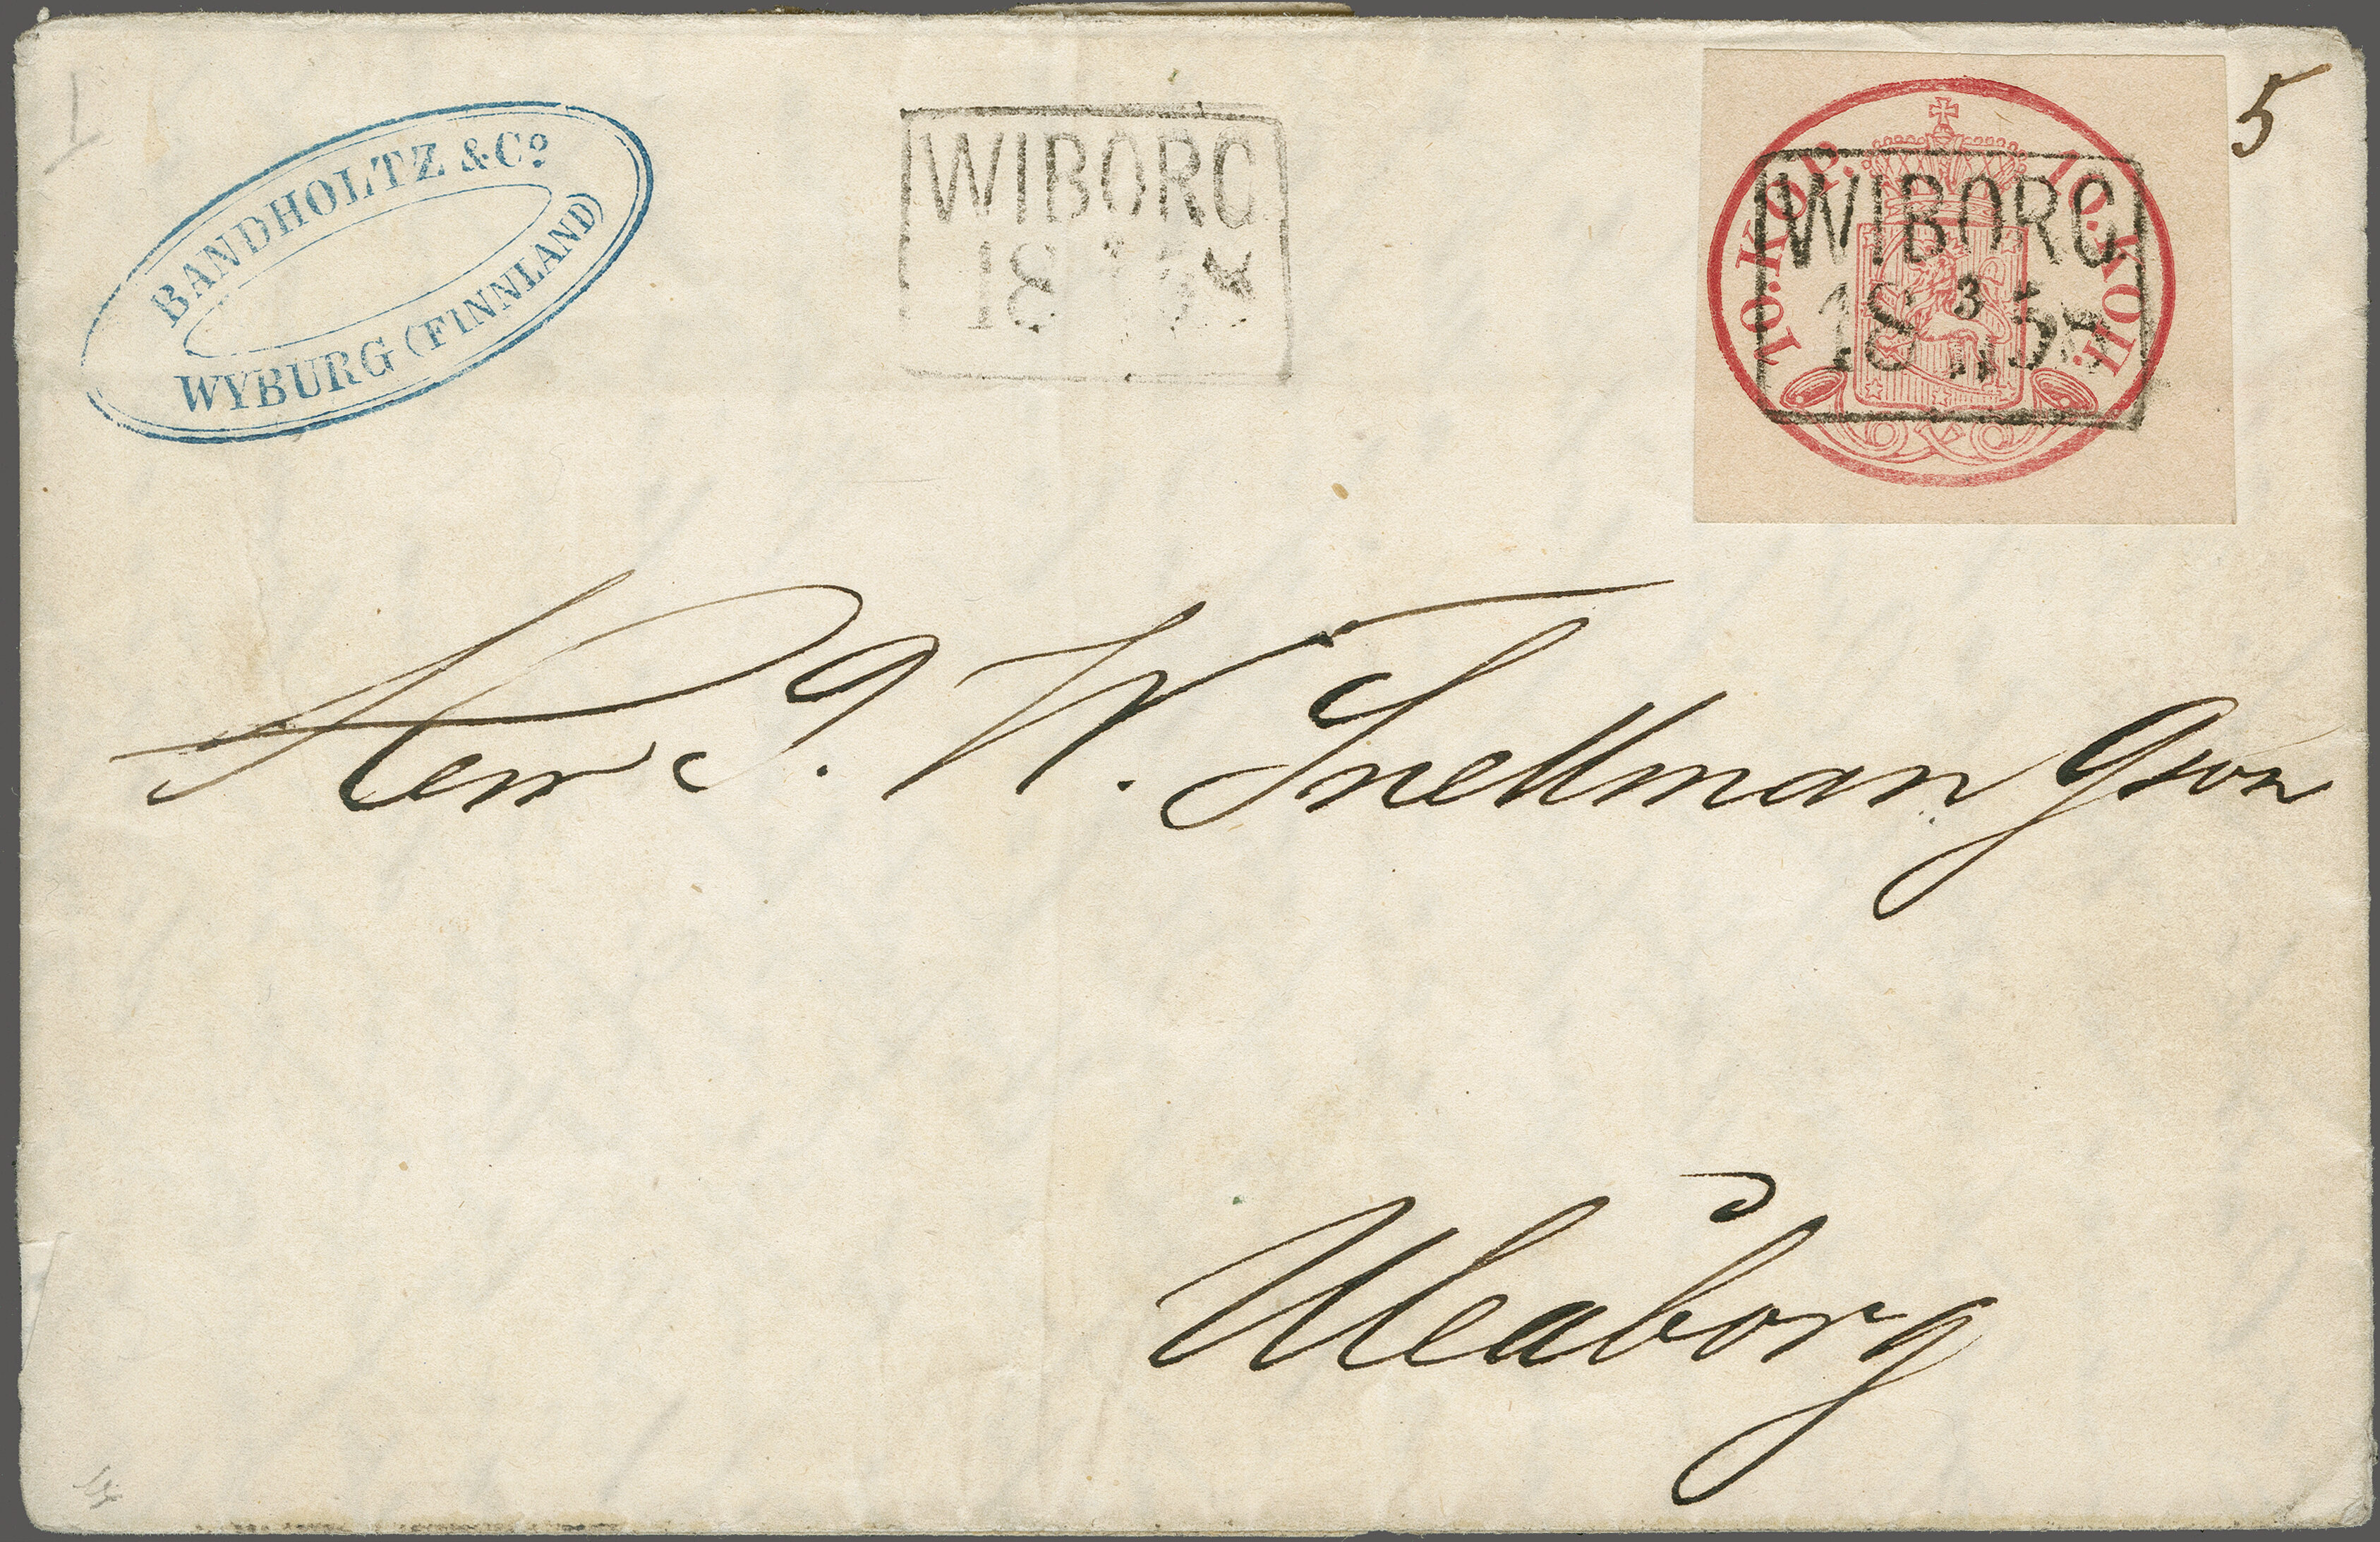 BANDHOLTZ & Co
WYBURG (FINNLAND)
WIBORG
18 58
10. KOP. 10. КОП.
WIBORG
18 3/11 58
5
Herr J. W. Snellman Gson
Uleåborg